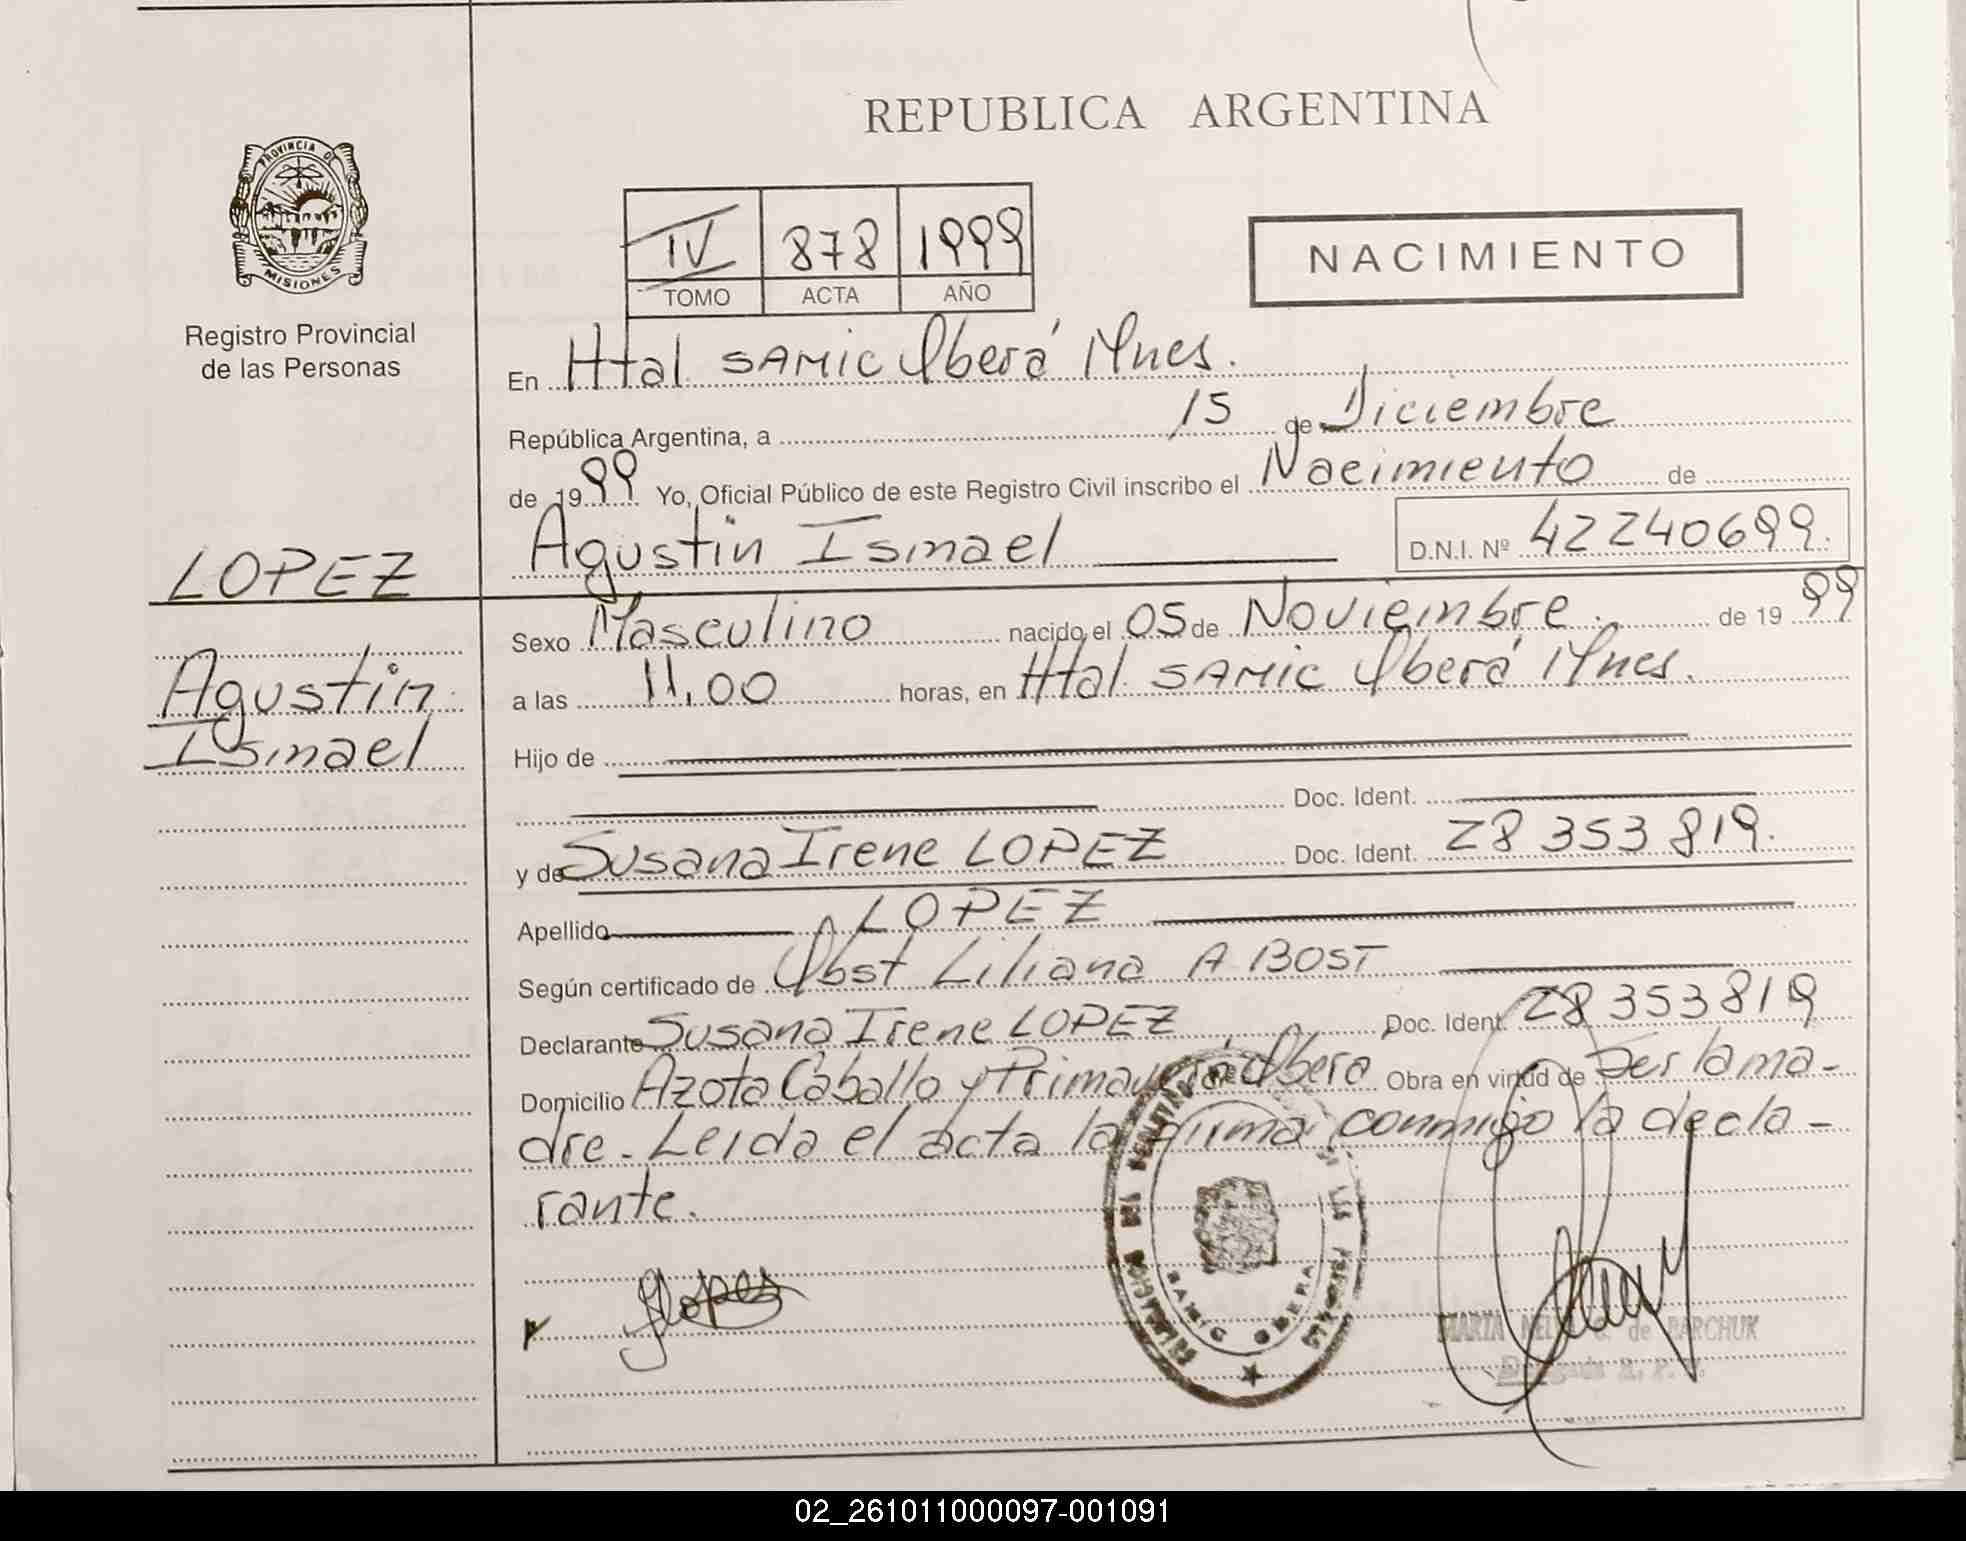 REPUBLICA ARGENTINA
PROVINCIA DE MISIONES
Registro Provincial
de las Personas
IV 878 1999
TOMO ACTA AÑO
NACIMIENTO
En Htal SAMIC Oberá Mnes.
República Argentina, a 15 de Diciembre
de 1999 Yo, Oficial Público de este Registro Civil inscribo el Nacimiento de
Agustin Ismael D.N.I. Nº 42240699.
LOPEZ
Agustin
Ismael
Sexo Masculino nacido el 05 de Noviembre. de 1999
a las 11,00 horas, en Htal SAMIC Oberá Mnes.
Hijo de
Doc. Ident.
y de Susana Irene LOPEZ Doc. Ident. 28 353 819.
Apellido LOPEZ
Según certificado de Obst Liliana A BOST
Declarante Susana Irene LOPEZ Doc. Ident. 28 353819
Domicilio Azota Caballo y Primavera Obera Obra en virtud de Ser la ma-
dre. Leida el acta la firma conmigo la decla-
rante.
SLopez
SAMIC OBERA
MARTA de BARCHUK
02_261011000097-001091